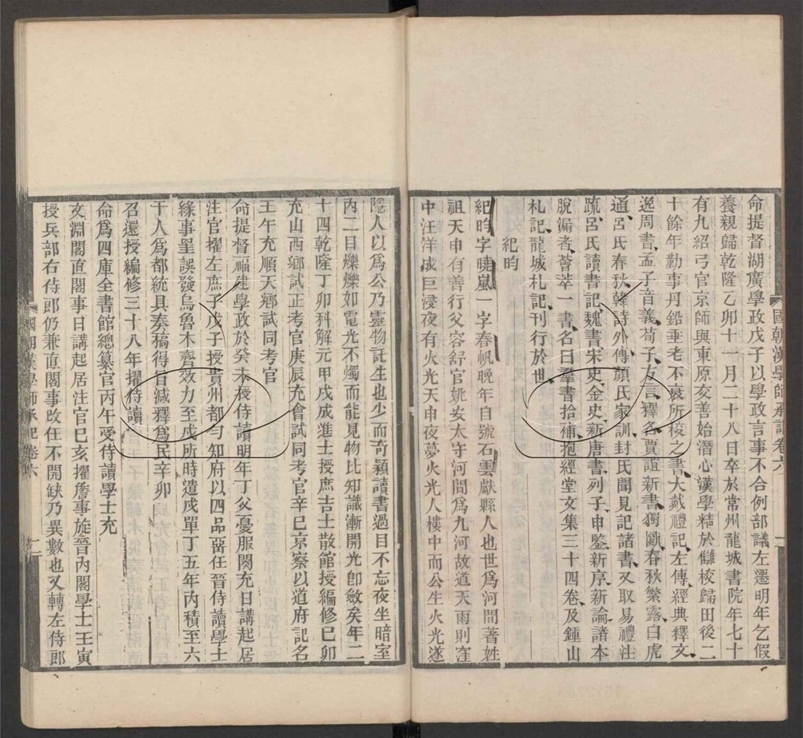 命提督湖廣學政戊子以學政言事不合例部議左遷明年乞假
養親歸乾隆乙卯十一月二十八日卒於常州龍城書院年七十
有九紹弓官京師與東原交善始潛心漢學精於讎校歸田後二
十餘年勤事丹鉛垂老不衰所校之書大戴禮記左傳經典釋文
逸周書孟子音義荀子方言釋名賈誼新書獨斷春秋繁露白虎
通呂氏春秋韓詩外傳顏氏家訓封氏聞見記諸書又取易禮注
疏呂氏讀書記魏書宋史金史新唐書列子申鑒新序新論諸本
脫偏者薈萃一書名曰羣書拾補抱經堂文集三十四卷及鍾山
札記龍城札記刊行於世
紀昀
紀昀字曉嵐一字春帆晚年自號石雲獻縣人也世為河間著姓
祖天申有善行父容舒官姚安太守河間為九河故道天雨則窪
中汪洋成巨浸夜有火光天申夜夢火光入樓中而公生火光遂
國朝漢學師承記卷六
隱人以為公乃靈物託生也少而奇穎讀書過目不忘夜坐暗室
內二目爍爍如電光不燭而能見物比知識漸開光卽斂矣年二
十四乾隆丁卯科解元甲戌成進士授庶吉士散館授編修己卯
充山西鄉試正考官庚辰充會試同考官辛巳京察以道府記名
壬午充順天鄉試同考官
命提督福建學政於癸未授侍讀明年丁父憂服闋充日講起居
注官擢左庶子戊子授貴州都勻知府以四品留任晉侍讀學士
緣事罣誤發烏魯木齊效力至戍所時遣戍單丁五年內積至六
千人為都統具奏稿得旨減釋為民辛卯
召還授編修三十八年擢侍讀
命為四庫全書館總纂官丙午受侍讀學士充
文淵閣直閣事日講起居注官己亥擢詹事旋晉內閣學士壬寅
授兵部右侍郎仍兼直閣事改任不開缺乃異數也又轉左侍郎
國朝漢學師承記卷六